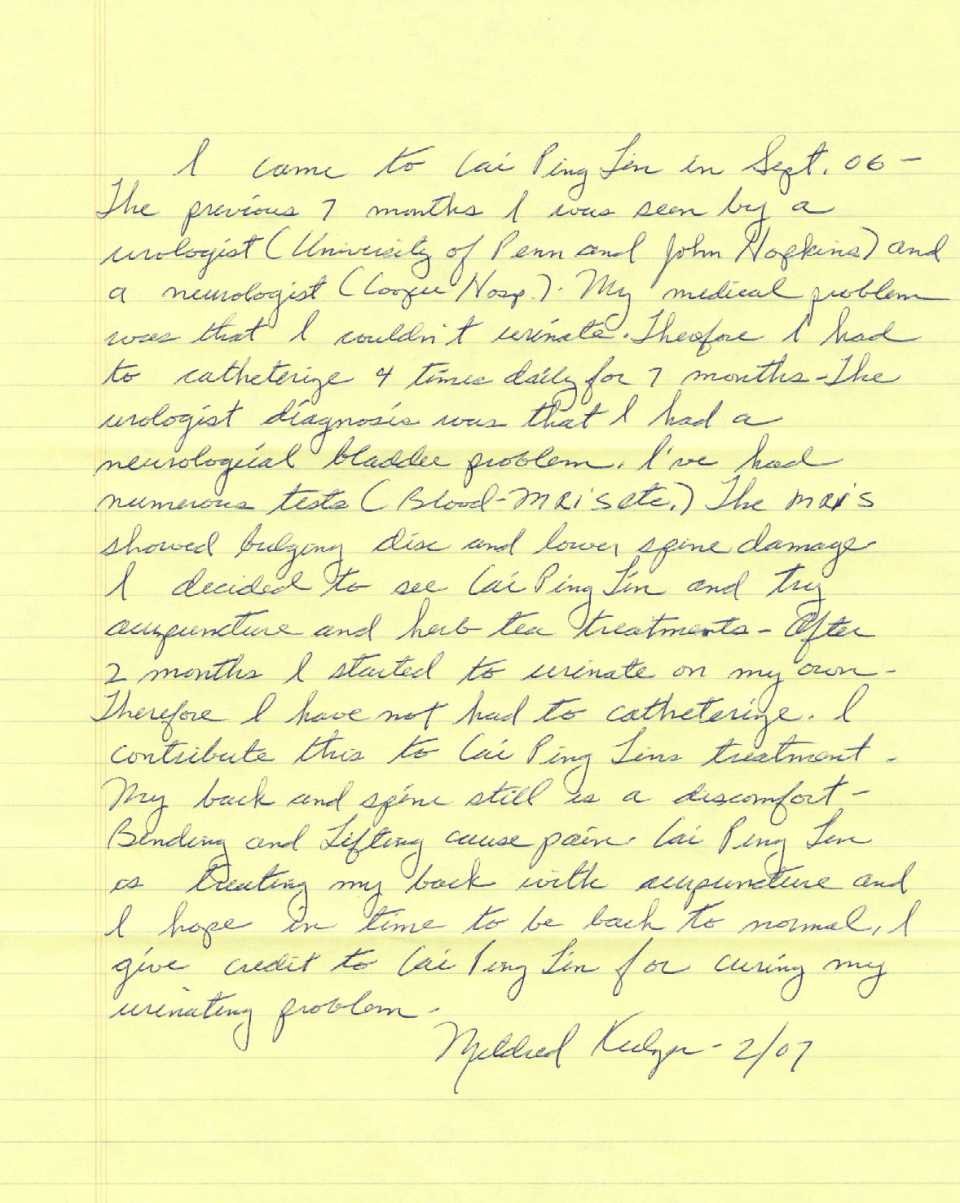 I came to Cai Ping Lin in Sept. 06 -
The previous 7 months I was seen by a
urologist (University of Penn and John Hopkins) and
a neurologist (Cooper Hosp.). My medical problem
was that I couldn't urinate. Theofore I had
to catheterize 4 times daily for 7 months - The
urologist diagnosis was that I had a
neurological bladder problem. I've had
numerous tests (Blood - MRI's etc.) The MRI's
showed bulging disc and lower spine damage.
I decided to see Cai Ping Lin and try
acupuncture and herb tea treatments - After
2 months I started to urinate on my own -
Therefore I have not had to catheterize. I
contribute this to Cai Ping Lins treatment.
My back and spine still is a discomfort -
Bending and Lifting cause pain. Cai Ping Lin
is treating my back with acupuncture and
I hope in time to be back to normal. I
give credit to Cai Ping Lin for curing my
urinating problem.
Mildred - 2/07